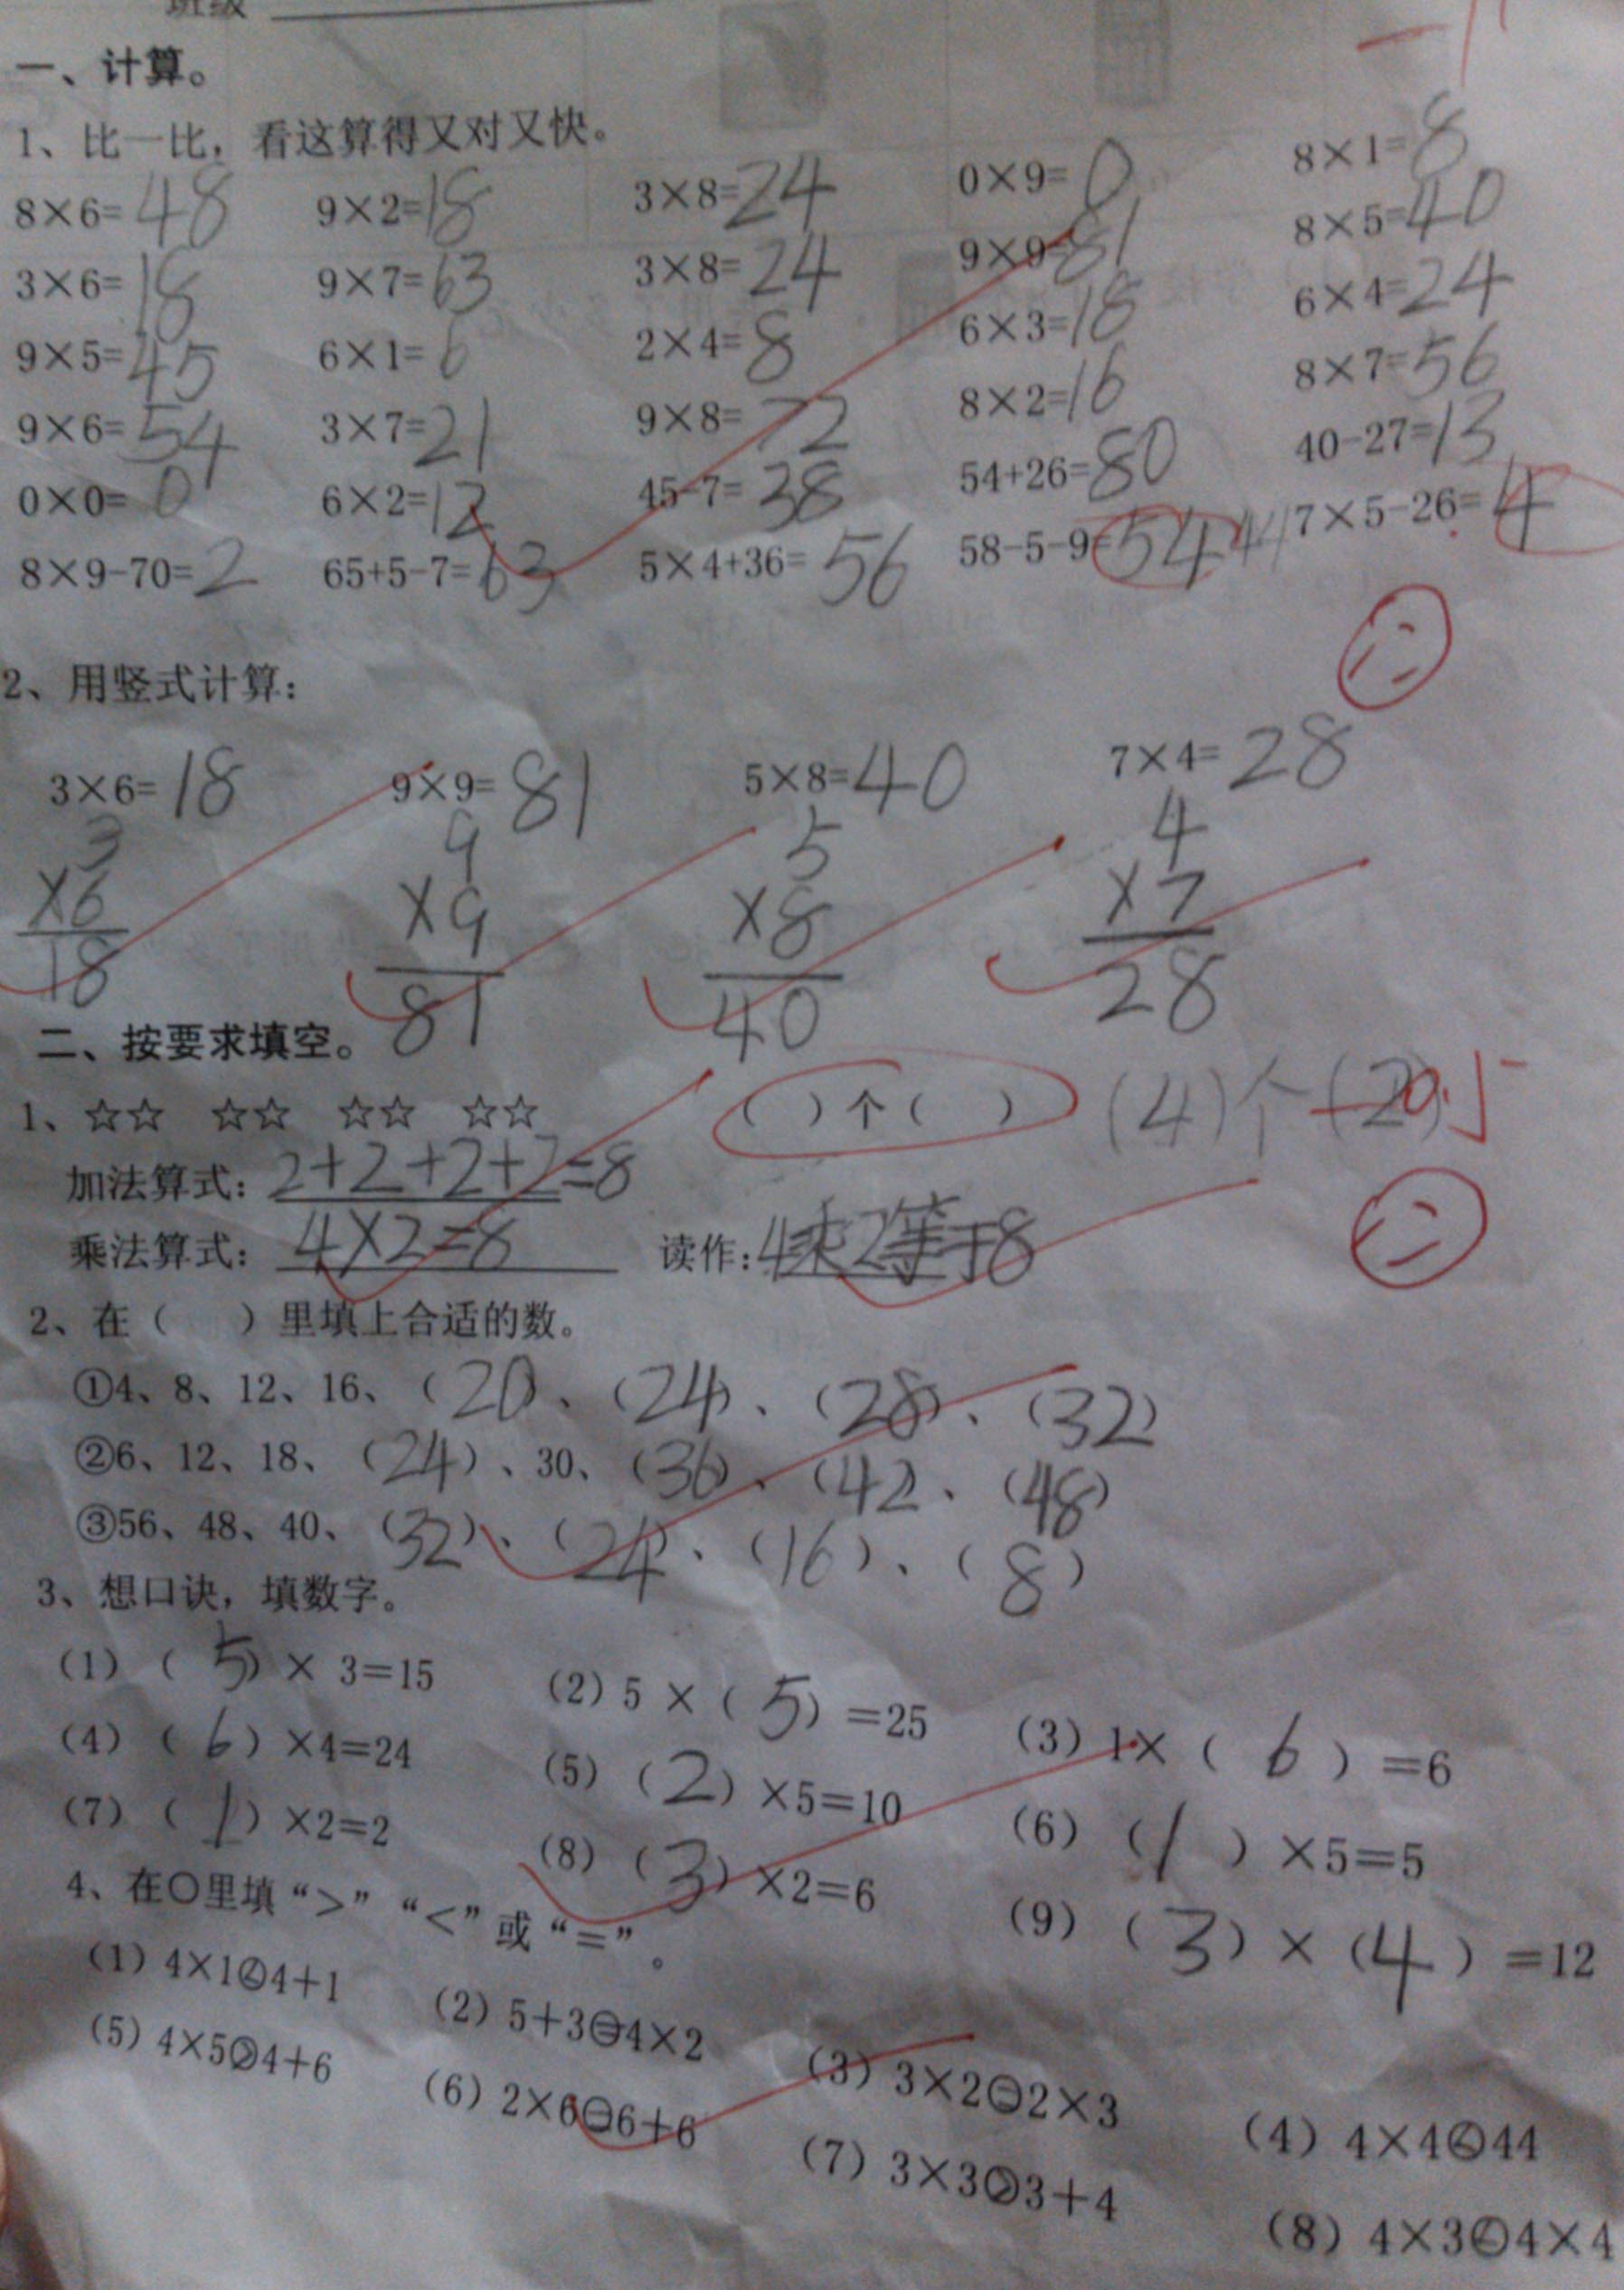 班级
一、计算。
1、比一比，看这算得又对又快。
8×6=48 9×2=18 3×8=24 0×9=0 8×1=8
3×6=18 9×7=63 3×8=24 9×9=81 8×5=40
9×5=45 6×1=6 2×4=8 6×3=18 6×4=24
9×6=54 3×7=21 9×8=72 8×2=16 8×7=56
0×0=0 6×2=12 45-7=38 54+26=80 40-27=13
8×9-70=2 65+5-7=63 5×4+36=56 58-5-9=54 44 7×5-26=4
2、用竖式计算：
3×6=18 9×9=81 5×8=40 7×4=28
3 9 5 4
×6 ×9 ×8 ×7
18 81 40 28
二、按要求填空。
1、☆☆ ☆☆ ☆☆ ☆☆ （ ）个（ ） (4)个(2)
加法算式：2+2+2+2=8
乘法算式：4×2=8 读作：4乘2等于8
2、在（ ）里填上合适的数。
①4、8、12、16、（20）、（24）、（28）、（32）
②6、12、18、（24）、30、（36）、（42）、（48）
③56、48、40、（32）、（24）、（16）、（8）
3、想口诀，填数字。
（1）（5）× 3=15 （2）5 ×（5）=25 （3）1×（6）=6
（4）（6）×4=24 （5）（2）×5=10 （6）（1）×5=5
（7）（1）×2=2 （8）（3）×2=6 （9）（3）×（4）=12
4、在○里填“＞”“＜”或“＝”。
（1）4×1<4+1 （2）5+3=4×2 （3）3×2=2×3 （4）4×4<44
（5）4×5>4+6 （6）2×6=6+6 （7）3×3>3+4 （8）4×3<4×4